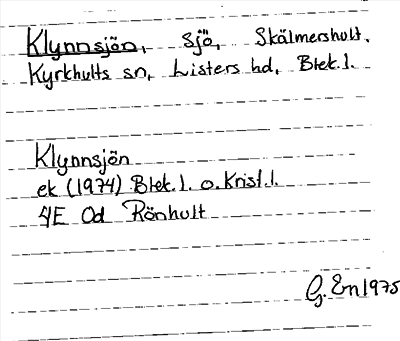 Klynnsjön, sjö, Skälmershult.
Kyrkhults sn, Listers hd, Blek.l.
Klynnsjön
ek (1974) Blek.l. o. Krist.l.
4E Od Rönhult
G. En 1975